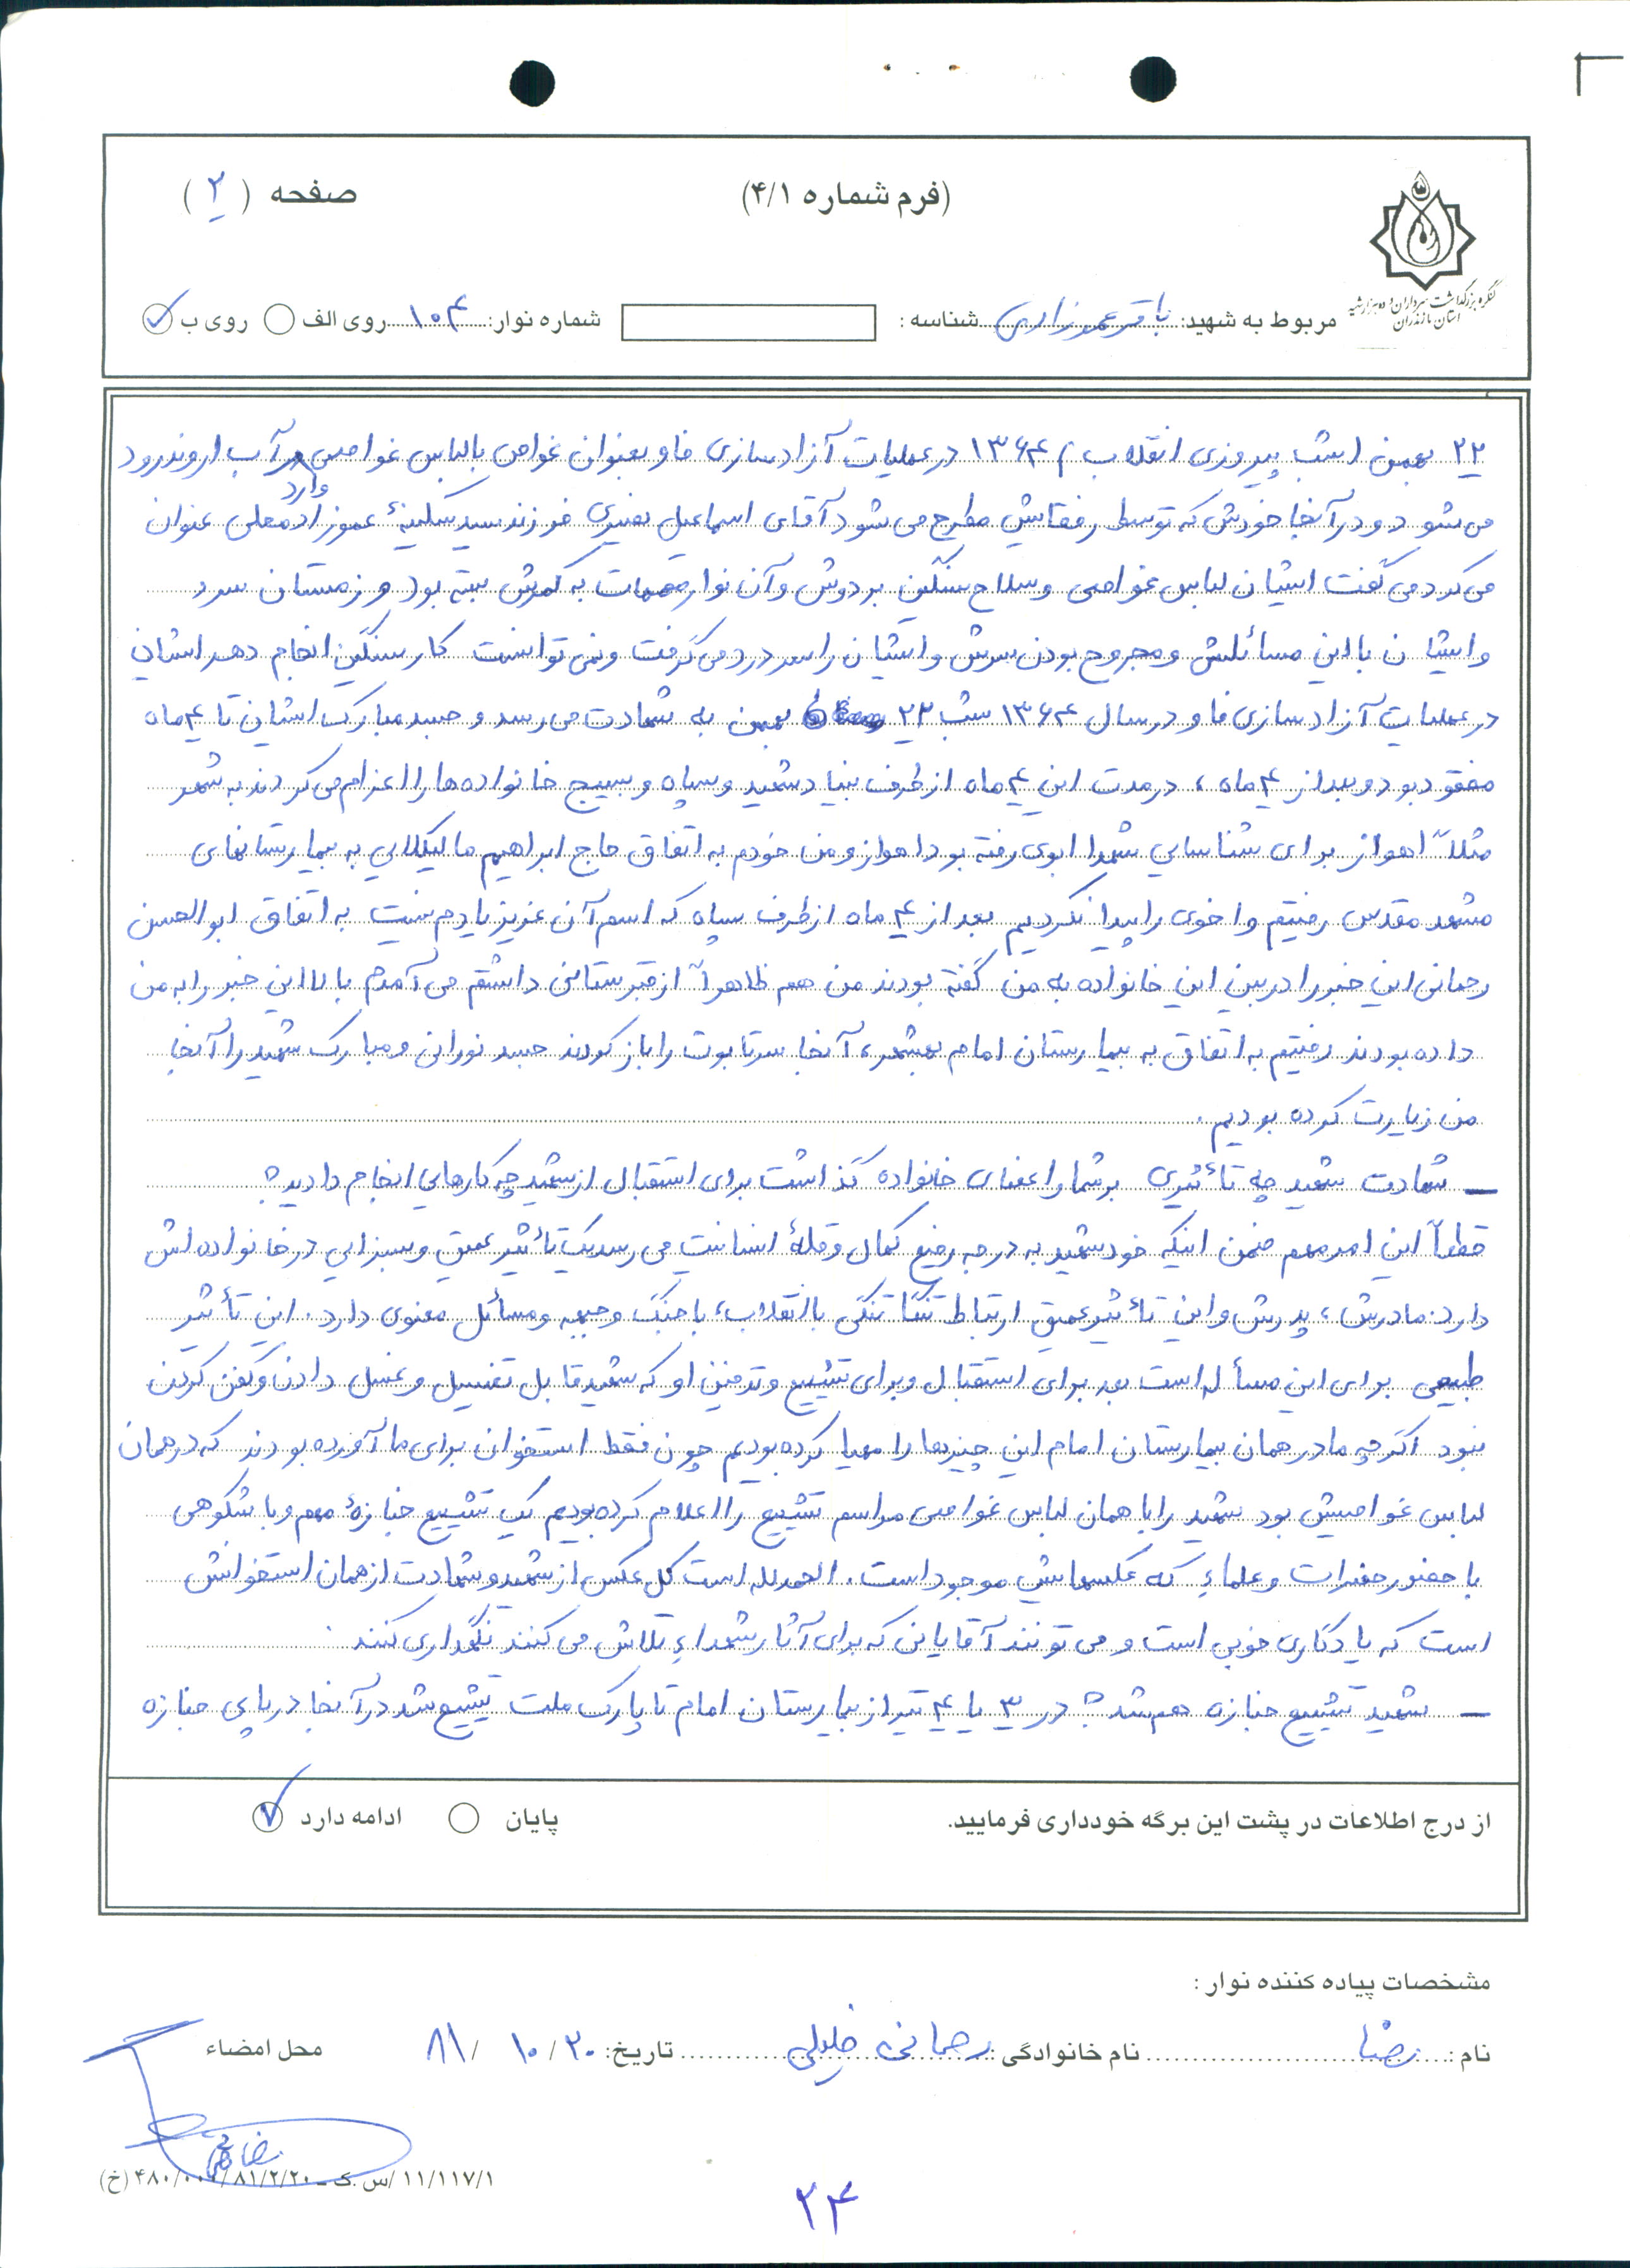 (فرم شماره ۴/۱)
صفحه (۲)
کنگره بزرگداشت سرداران و ده هزار شهید
استان مازندران
مربوط به شهید: باقر عموزادی شناسه: شماره نوار: ۱۰۴ روی الف روی ب
۲۲ بهمن (شب پیروزی انقلاب) ۱۳۶۴ در عملیات آزادسازی فاو بعنوان غواص بالباس غواصی در آب اروندرود
وارد
می شود و در آنجا خودش که توسط رفقایش مطرح می شود آقای اسماعیل نصیری فرزند سید سکینهٔ عموزاد معلی عنوان
می کرد می گفت ایشان لباس غواصی و سلاح سنگین بر دوش و آن نوار مهمات به کمرش بسته بود و زمستان سرد
و ایشان با این مسائلش و مجروح بودن سرش و ایشان را سردرد می گرفت و نمی توانست کار سنگین انجام دهد ایشان
در عملیات آزادسازی فاو در سال ۱۳۶۴ شب ۲۲ بهمن به شهادت می رسد و جسد مبارک ایشان تا ۴ ماه
مفقود بود و بعد از ۴ ماه ، در مدت این ۴ ماه از طرف بنیاد شهید و سپاه و بسیج خانواده ها را اعزام می کردند به شهر
مثلاً اهواز برای شناسایی شهدا ابوی رفته بود اهواز و من خودم به اتفاق حاج ابراهیم مالیکلایی به بیمارستانهای
مشهد مقدس رفتیم و اخوی را پیدا نکردیم بعد از ۴ ماه از طرف سپاه که اسم آن عزیز یادم نیست به اتفاق ابوالحسن
رحمانی این خبر را در بین این خانواده به من گفته بودند من هم ظاهراً از قبرستانی داشتم می آمدم بالا این خبر را به من
داده بودند رفتیم به اتفاق به بیمارستان امام بهشهر، آنجا سر تابوت را باز کردند جسد نورانی و مبارک شهید را آنجا
من زیارت کرده بودیم.
ـ شهادت شهید چه تأثیری بر شما و اعضای خانواده گذاشت برای استقبال از شهید چه کارهایی انجام دادید؟
قطعاً این امر مهم ضمن اینکه خود شهید به درجه رفیع کمال و قلهٔ انسانیت می رسد یک تأثیر عمیق و بسزایی در خانواده اش
دارد: مادرش ، پدرش و این تأثیر عمیق ارتباط تنگاتنگی با انقلاب، با جنگ و جبهه و مسائل معنوی دارد. این تأثیر
طبیعی برای این مسأله است بعد برای استقبال و برای تشییع و تدفین او که شهید قابل تغسیل و غسل دادن و کفن کردن
نبود اگر چه ما در همان بیمارستان امام این چیزها را مهیا کرده بودیم چون فقط استخوان برای ما آورده بودند که در همان
لباس غواصیش بود شهید را با همان لباس غواصی مراسم تشییع را اعلام کرده بودیم یک تشییع جنازهٔ مهم و با شکوهی
با حضور حضرات و علماءِ که عکسهایش موجود است. الحمدلله است کل عکس از شهید و شهادت از همان استخوانش
است که یادگاری خوبی است و می توانند آقایانی که برای آثار شهداءِ تلاش می کنند نگهداری کنند.
ـ شهید تشییع جنازه هم شد؟ در ۳ یا ۴ تیر از بیمارستان امام تا پارک ملت تشییع شد در آنجا در پای جنازه
از درج اطلاعات در پشت این برگه خودداری فرمایید.
پایان ادامه دارد
مشخصات پیاده کننده نوار :
نام : رضا نام خانوادگی رحمانی خلیلی تاریخ: ۲۰ / ۱۰ / ۸۱ محل امضاء
۲۴